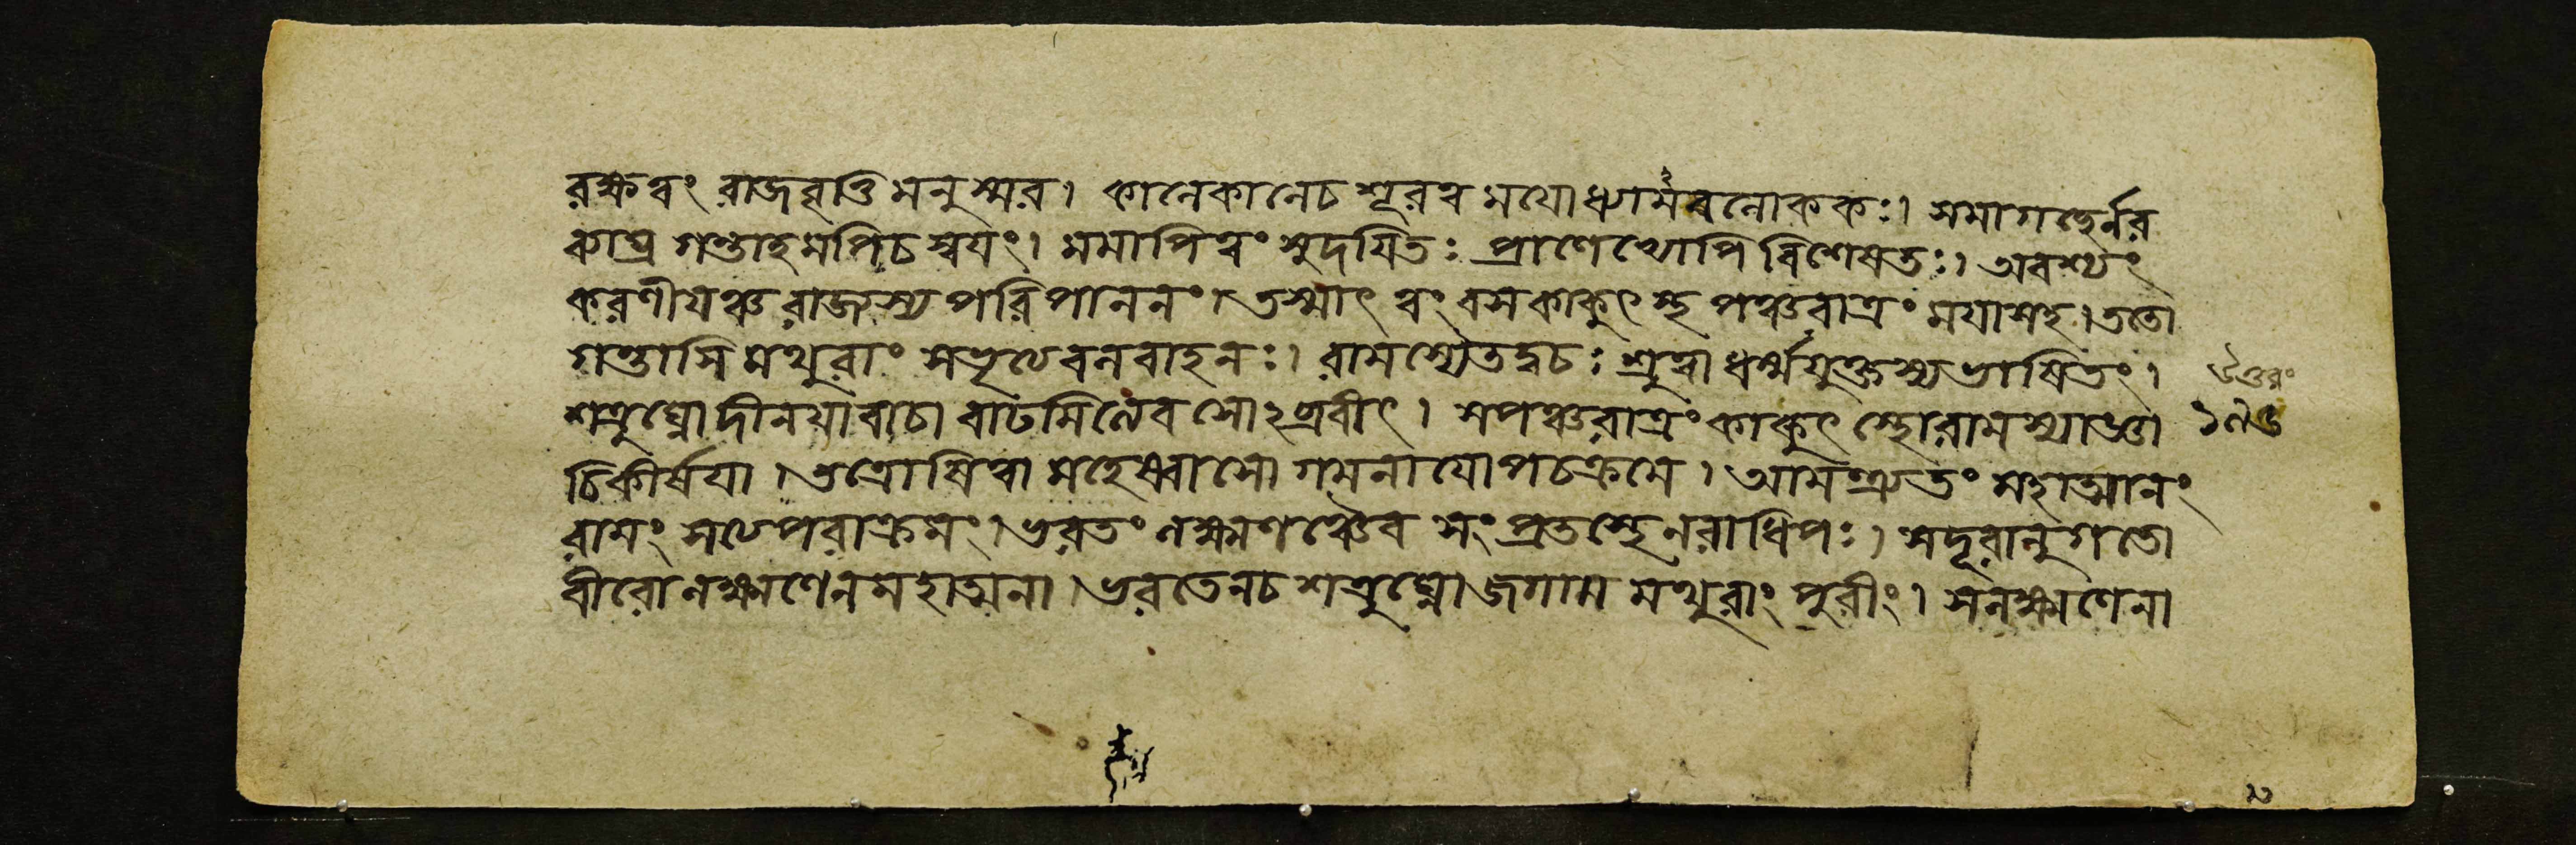 রক্ষত্বং রাজবৃত্তিমনুস্মর। কালেকালেচ শূরত্ব মযোধ্যামবলোককঃ। সমাগচ্ছের্নর
ব্যাঘ্র গন্তাহমপিচ স্বযং। মমাপিত্বং সুদযিতঃ প্রাণেভ্যোপি বিশেষতঃ। অবশ্যং
করণীযঞ্চ রাজ্যস্য পরিপালনং। তস্মাৎ ত্বং বসকাকুৎস্থ পঞ্চরাত্রং মযাসহ। ততো
গন্তাসি মথুরাং সভৃত্যবলবাহনঃ। রামস্যৈতদ্বচঃ শ্রুত্বা ধর্ম্মযুক্তস্যভাষিতং।
শত্রুঘ্নোদীনযাবাচা বাঢমিত্যেব সোঽব্রবীৎ। সপঞ্চরাত্রং কাকুৎস্থোরামস্যাজ্ঞা
চিকীর্ষযা। তত্রোষিত্বা মহেষ্বাসো গমনাযোপচক্রমে। আমন্ত্র্যতং মহাত্মানং
রামং সত্যপরাক্রমং। ভরতং লক্ষ্মণঞ্চৈব সংপ্রতস্থেনরাধিপঃ। সদূরানুগতো
বীরোলক্ষ্মণেনমহাত্মনা। ভরতেনচ শত্রুঘ্নোজগাম মথুরাং পুরীং। সলক্ষ্মণেনা
উত্তরং